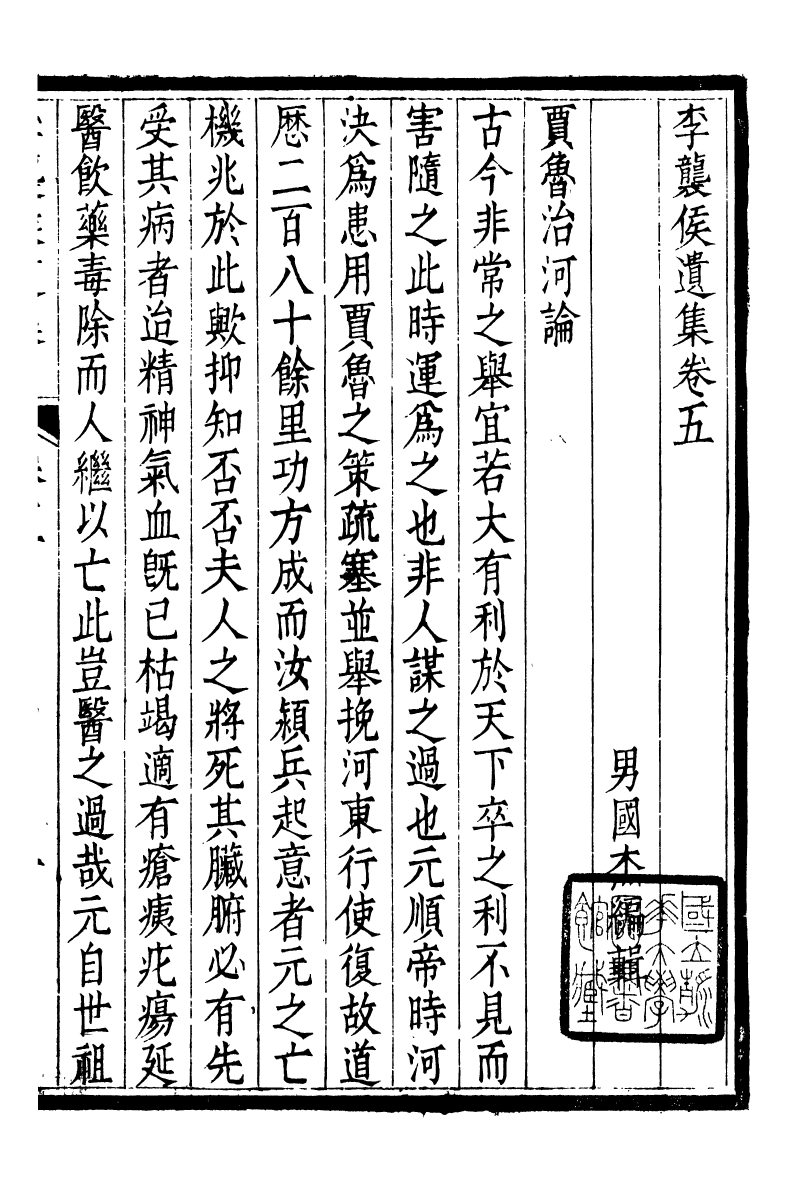 李襲侯遺集卷五
男國杰編輯
賈魯治河論
古今非常之舉宜若大有利於天下卒之利不見而
害隨之此時運爲之也非人謀之過也元順帝時河
決爲患用賈魯之策疏塞並舉挽河東行使復故道
歷二百八十餘里功方成而汝潁兵起意者元之亡
機兆於此歟抑知否否夫人之將死其臟腑必有先
受其病者迨精神氣血旣已枯竭適有瘡痍疕瘍延
醫飲藥毒除而人繼以亡此豈醫之過哉元自世祖